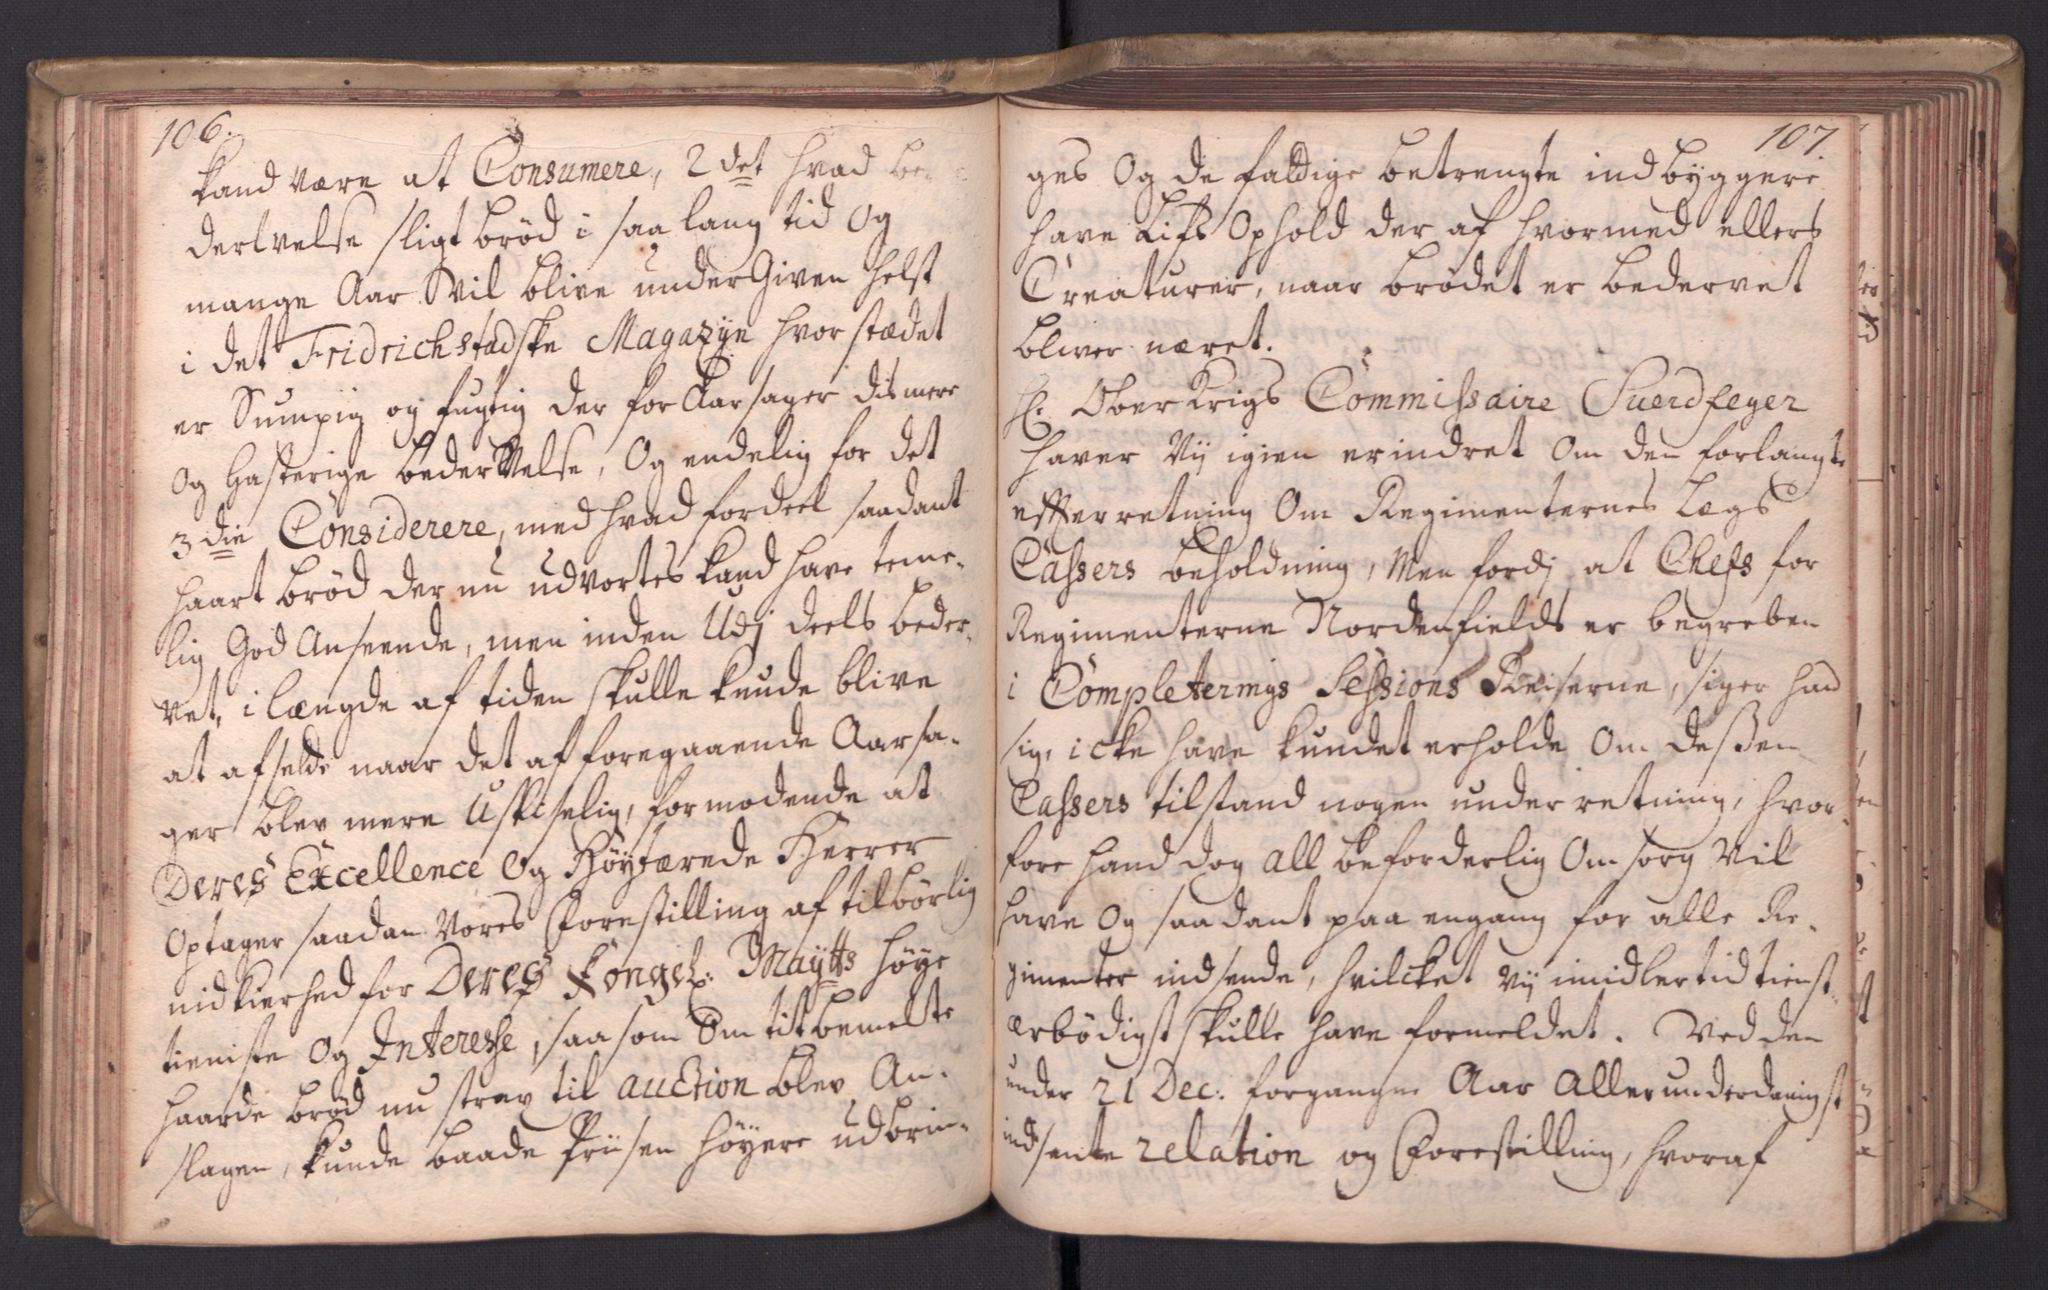 106.
kand være at Consumere, 2det hvad be-
dervelse sligt brød i saa lang tid Og
mange Aar Vil blive underGiven helst
i det Fridrichstadske Magazyn hvor stædet
er Sumpig og fugtig der for Aarsager dis mere
Og hasterige bederVelse, Og endelig for det
3die Considerere, med hvad fordeel saadant
haart brød der nu udvortes kand have teme-
lig God Anseende, men inden Udj deels beder-
vet, i længde af tiden skulle kunde blive
at afselde naar det af foregaaende Aarsa-
ger blev mere Uspiselig, formodende at
Deres Excellence Og Høytærede Herrer
Optager saadan Vores Forestilling af tilbørlig
nidkierhed for Deres Kongel: Maytts høye
tieniste Og Interesse, saa som Om titbemelte
haarde brød nu strax til auction blev An-
slagen, kunde baade Priisen høyere udbrin-
107.
ges Og de fattige betrengte indbyggere
have Lifs Ophold der af hvormed ellers
Creaturer, naar brødet er bedervet
bliver næret.
H: Ober Krigs Commissaire Suerdfeger
haver Vij igien erindret Om den forlangte
efterretning Om Regimenternes Lægs
Cassers beholdning, Men fordj at Chefs for
Regimenterne Nordenfields er begreben
i Completerings Sessions Reiserne, siger hand
sig icke have kundet erholde Om deßen
Cassers tilstand nogen underretning, hvor-
fore hand dog all beforderlig Omsorg Vil
have Og saadant paa engang for alle Re-
gimenter indsende, hvilcket Vij imidlertid tienst-
ærbödigst skulle have formeldet. Ved den
under 21 Dec: forgangne Aar Allerunderdanigst
indsente relation og Forestilling, hvoraf